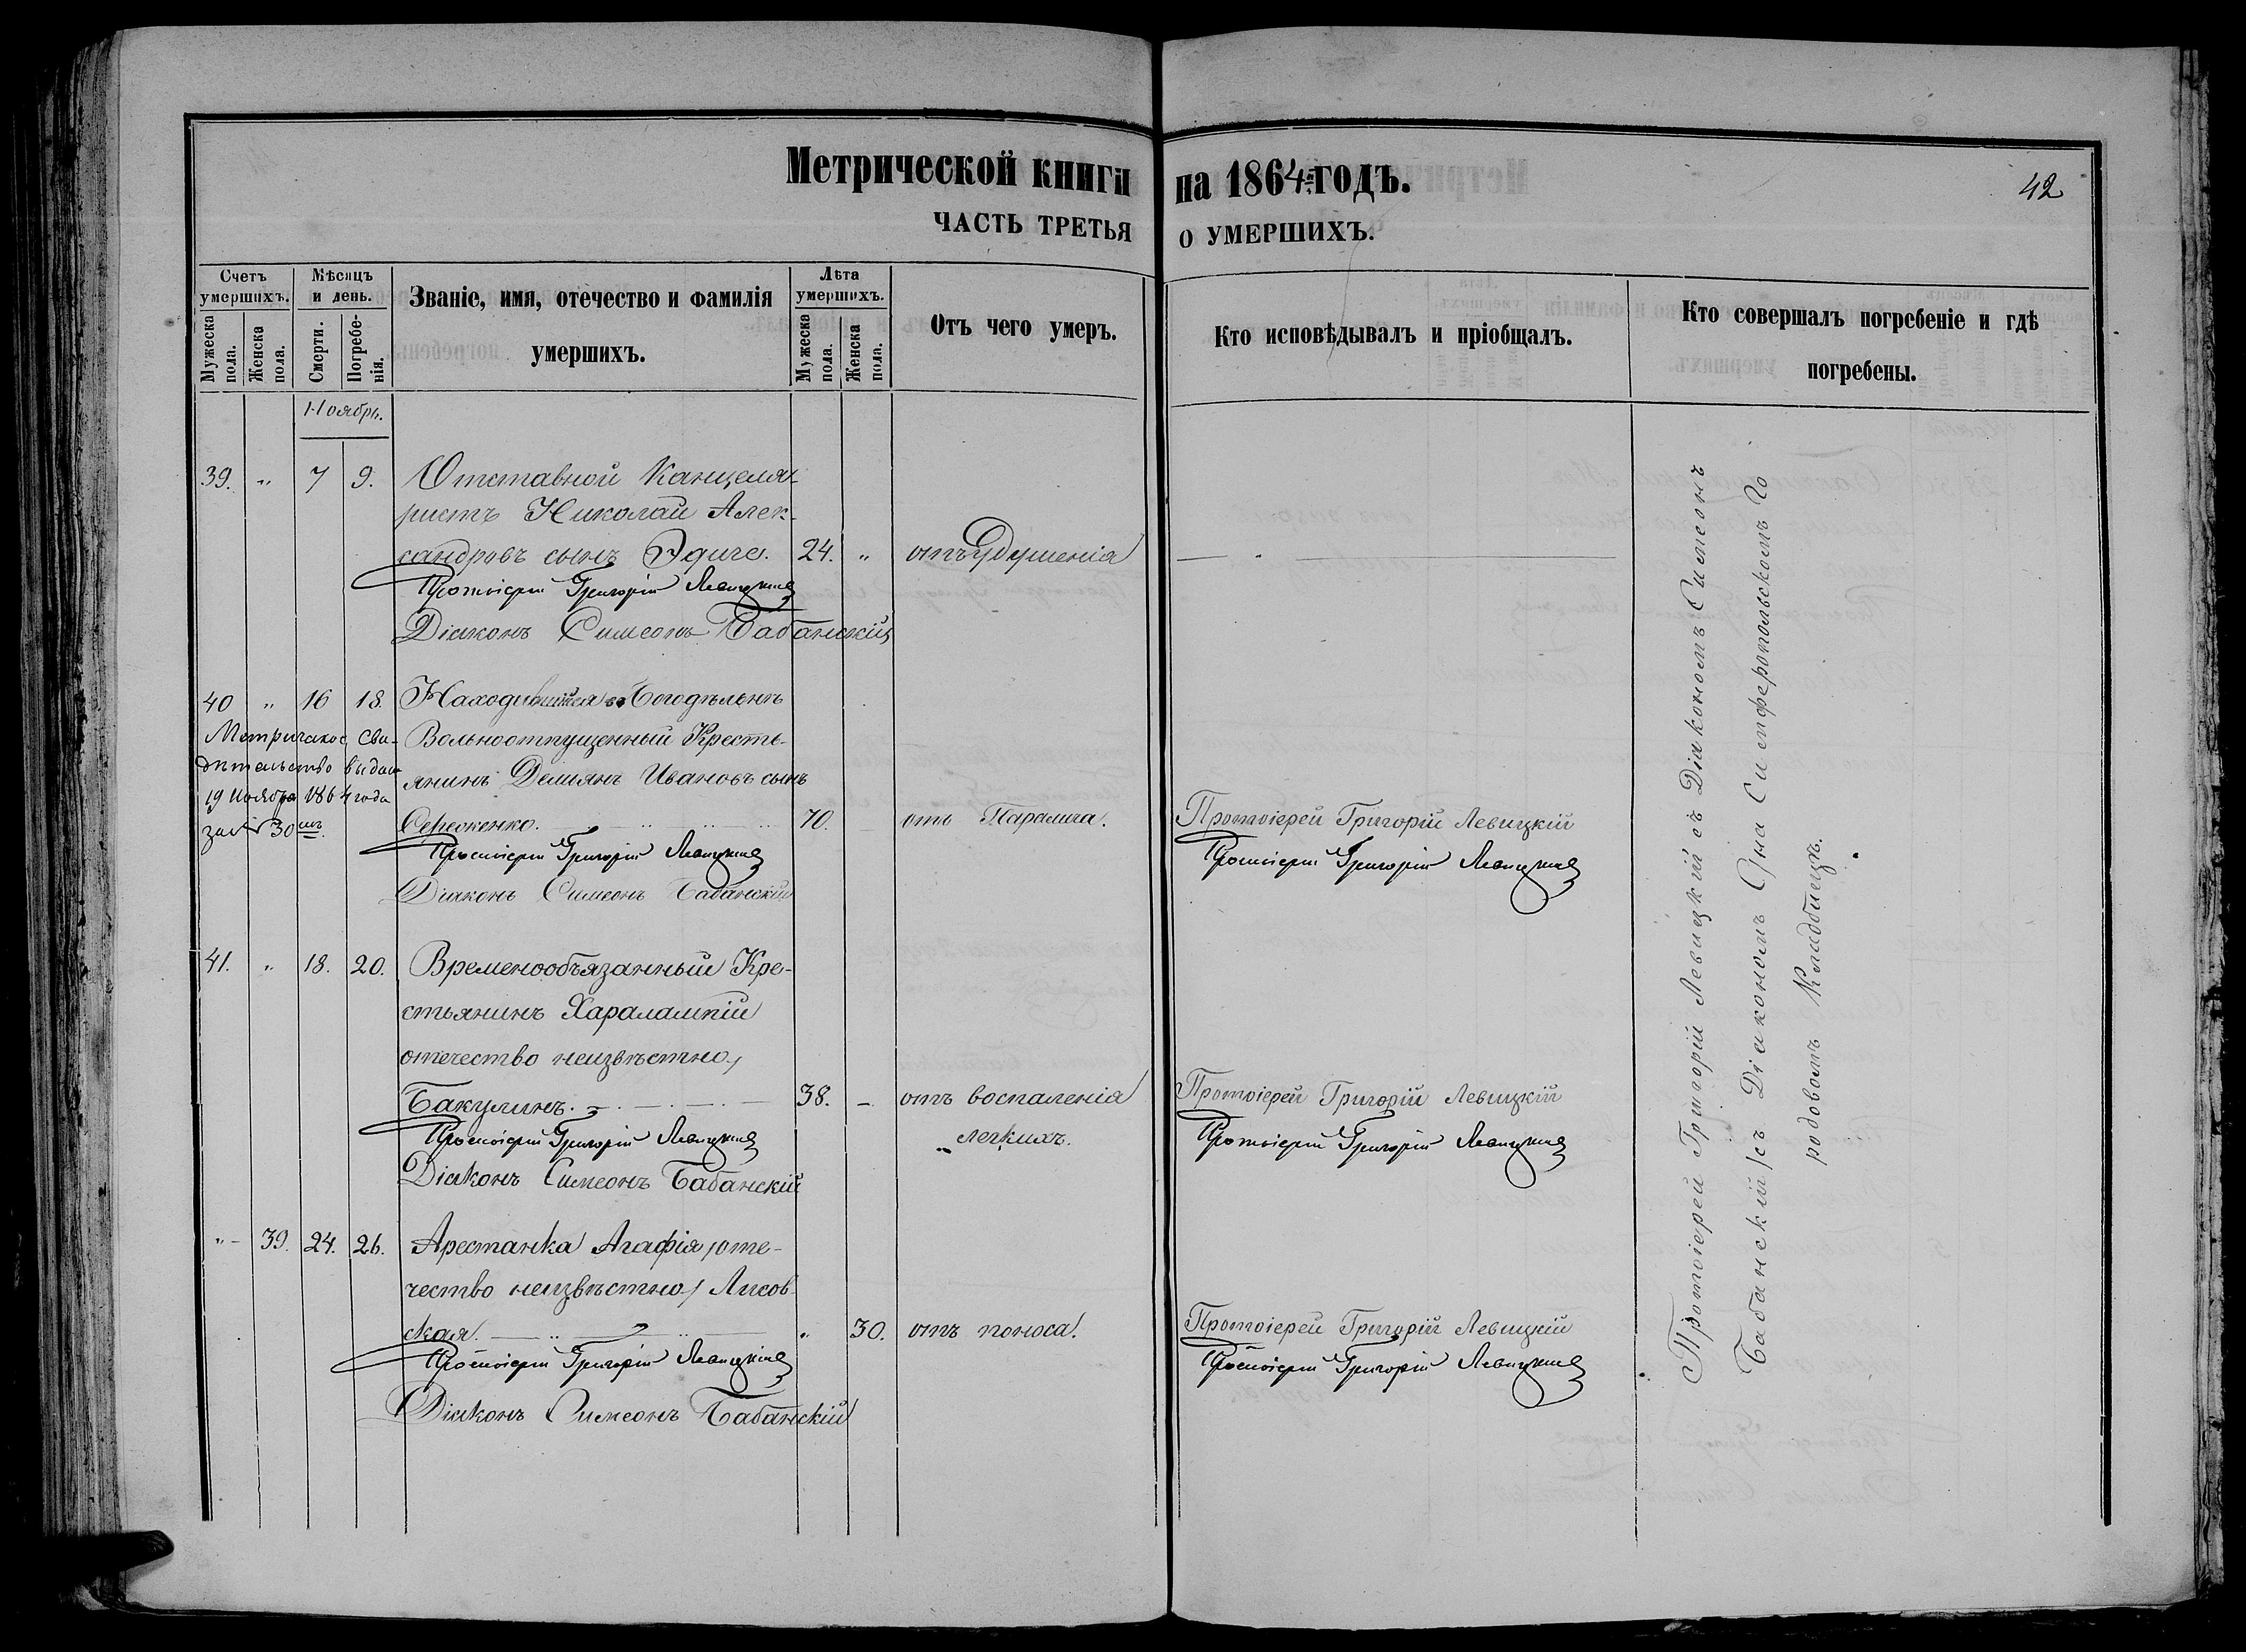 Метрической книги на 1864й годъ.
42
ЧАСТЬ ТРЕТЬЯ О УМЕРШИХЪ.
Счетъ умершихъ.
Мужеска пола.
Женска пола.
Мѣсяцъ и день.
Смерти.
Погребенія.
Званіе, имя, отечество и фамилія умершихъ.
Лѣта умершихъ.
Мужеска пола.
Женска пола.
Отъ чего умеръ.
Кто исповѣдывалъ и пріобщалъ.
Кто совершалъ погребеніе и гдѣ погребены.
Ноябрь.
39. " 7 9. Отставной Канцеля-
ристъ Николай Алек-
сандровъ сынъ 24. " отъ Удушенія
Протоіерей Григорій Левицкій
Діаконъ Симеонъ Бабанскій
40 " 16 18. Находившійся въ Богодѣльнѣ
Вольноотпущенный Кресть-
янинъ Демьянъ Ивановъ сынъ
Сергженко. 70. отъ Паралича. Протоіерей Григорій Левицкій
Протоіерей Григорій Левицкій Протоіерей Григорій Левицкій
Діаконъ Симеонъ Бабанскій
Метрическое сви-
дѣтельство выдан
19 Ноября 1864 года
за № 30мъ.
41. " 18. 20. Временообязанный Кре-
стьянинъ Харалампій
отечество неизвѣстно,
Бакулинъ. 38. - отъ воспаленія Протоіерей Григорій Левицкій
легкихъ.
Протоіерей Григорій Левицкій Протоіерей Григорій Левицкій
Діаконъ Симеонъ Бабанскій
" 39. 24. 26. Арестанка Агафія /оте-
чество неизвѣстно/ Лисов-
ская. " 30. отъ поноса. Протоіерей Григорій Левицкій
Протоіерей Григорій Левицкій Протоіерей Григорій Левицкій
Діаконъ Симеонъ Бабанскій
Протоіерей Григорій Левицкій съ Діакономъ Симеонъ
Бабанскій /съ Діакономъ на Симферопольскомъ Го
родовомъ Кладбищѣ.